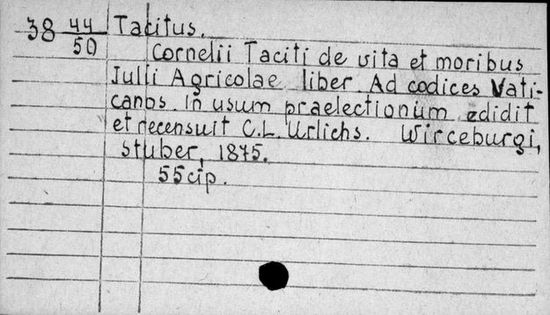 38 44/50 Tacitus.
Cornelii Taciti de vita et moribus
Iulii Agricolae liber. Ad codices Vati-
canos. In usum praelectionum edidit
et recensuit C.L. Urlichs. Wirceburgi,
Stuber, 1875.
55 cip.